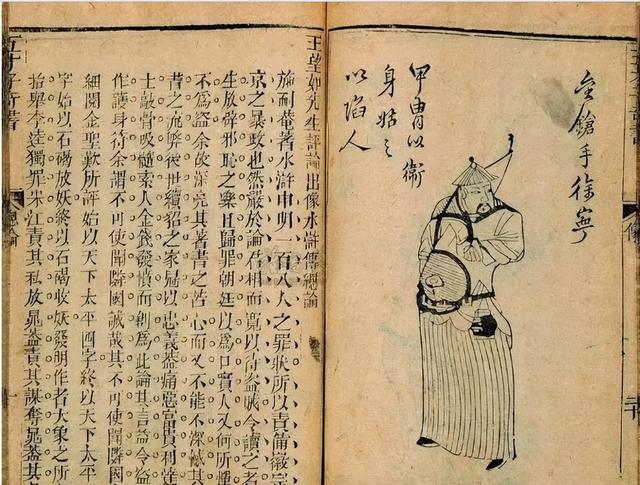 金鎗手徐寧
甲冑以衛
身姑之
以陷人
像
王望如先生評論出像水滸傳總論
施耐菴著水滸申明一百八人之罪狀所以責備徽宗
京之暴政也然嚴於論君相而寬以待盜賊令讀之者
生放辟邪恥之樂且歸罪朝廷以為口實人又何所憚
不為盜余故深亮其著書之苦心而又不能不深憾其
書之流弊後世續貂之家冠以忠義蓋痛惡富貴利達
士敲骨吸髓索人金錢發憤而創為此論其言益令盜
作護身符余謂不可使聞隣國誠哉其不可使聞隣國
細閱金聖歎所評始以天下太平四字終以天下太平
字始以石碣放妖終以石碣收妖發明作者大象之所
抬舉李逵獨罪宋江責其私放晁蓋責其謀奪晁蓋其
五才子奇書
總論